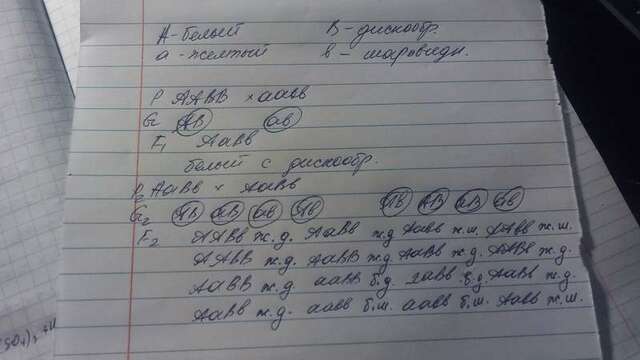 А - белый В - дискообр.
а - желтый в - шаровидн.
Р ААВВ × аавв
G АВ ав
F1 АаВв
белый с дискообр.
Р2 АаВв × АаВв
G2 АВ аВ ав Ав АВ
F2 ж.д. АаВв ж.д ж.ш. ж.ш.
ААВв ж.д. АаВВ ж.д АаВв ж.д. ж.д.
АаВВ ж.д ааВВ б.д. АаВв ж.д.
АаВв ж.д. б.ш. аавв б.ш. Аавв ж.ш.